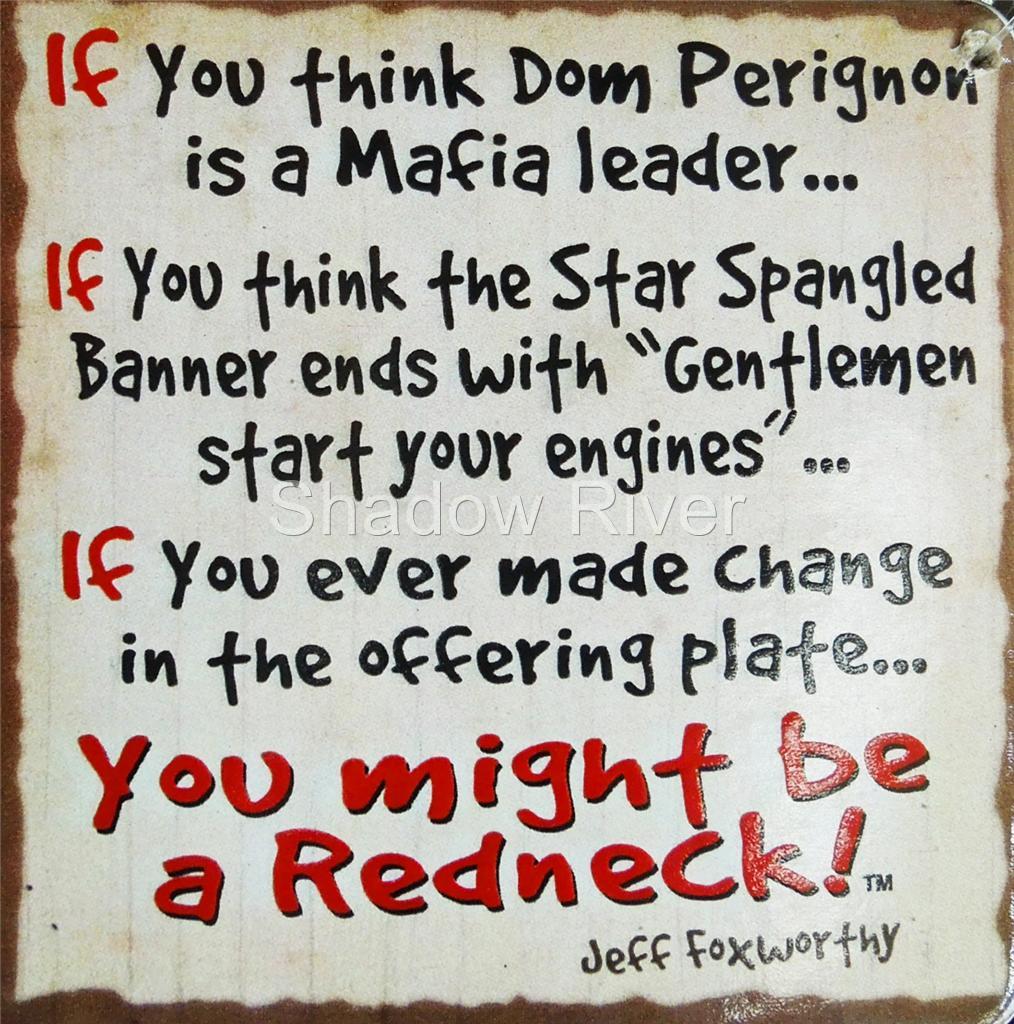 If You think Dom Perignon
is a Mafia leader...
If You think the Star Spangled
Banner ends with "Gentlemen
start your engines"...
Shadow River
If You ever made change
in the offering plate...
You might be
a Redneck!™
Jeff Foxworthy